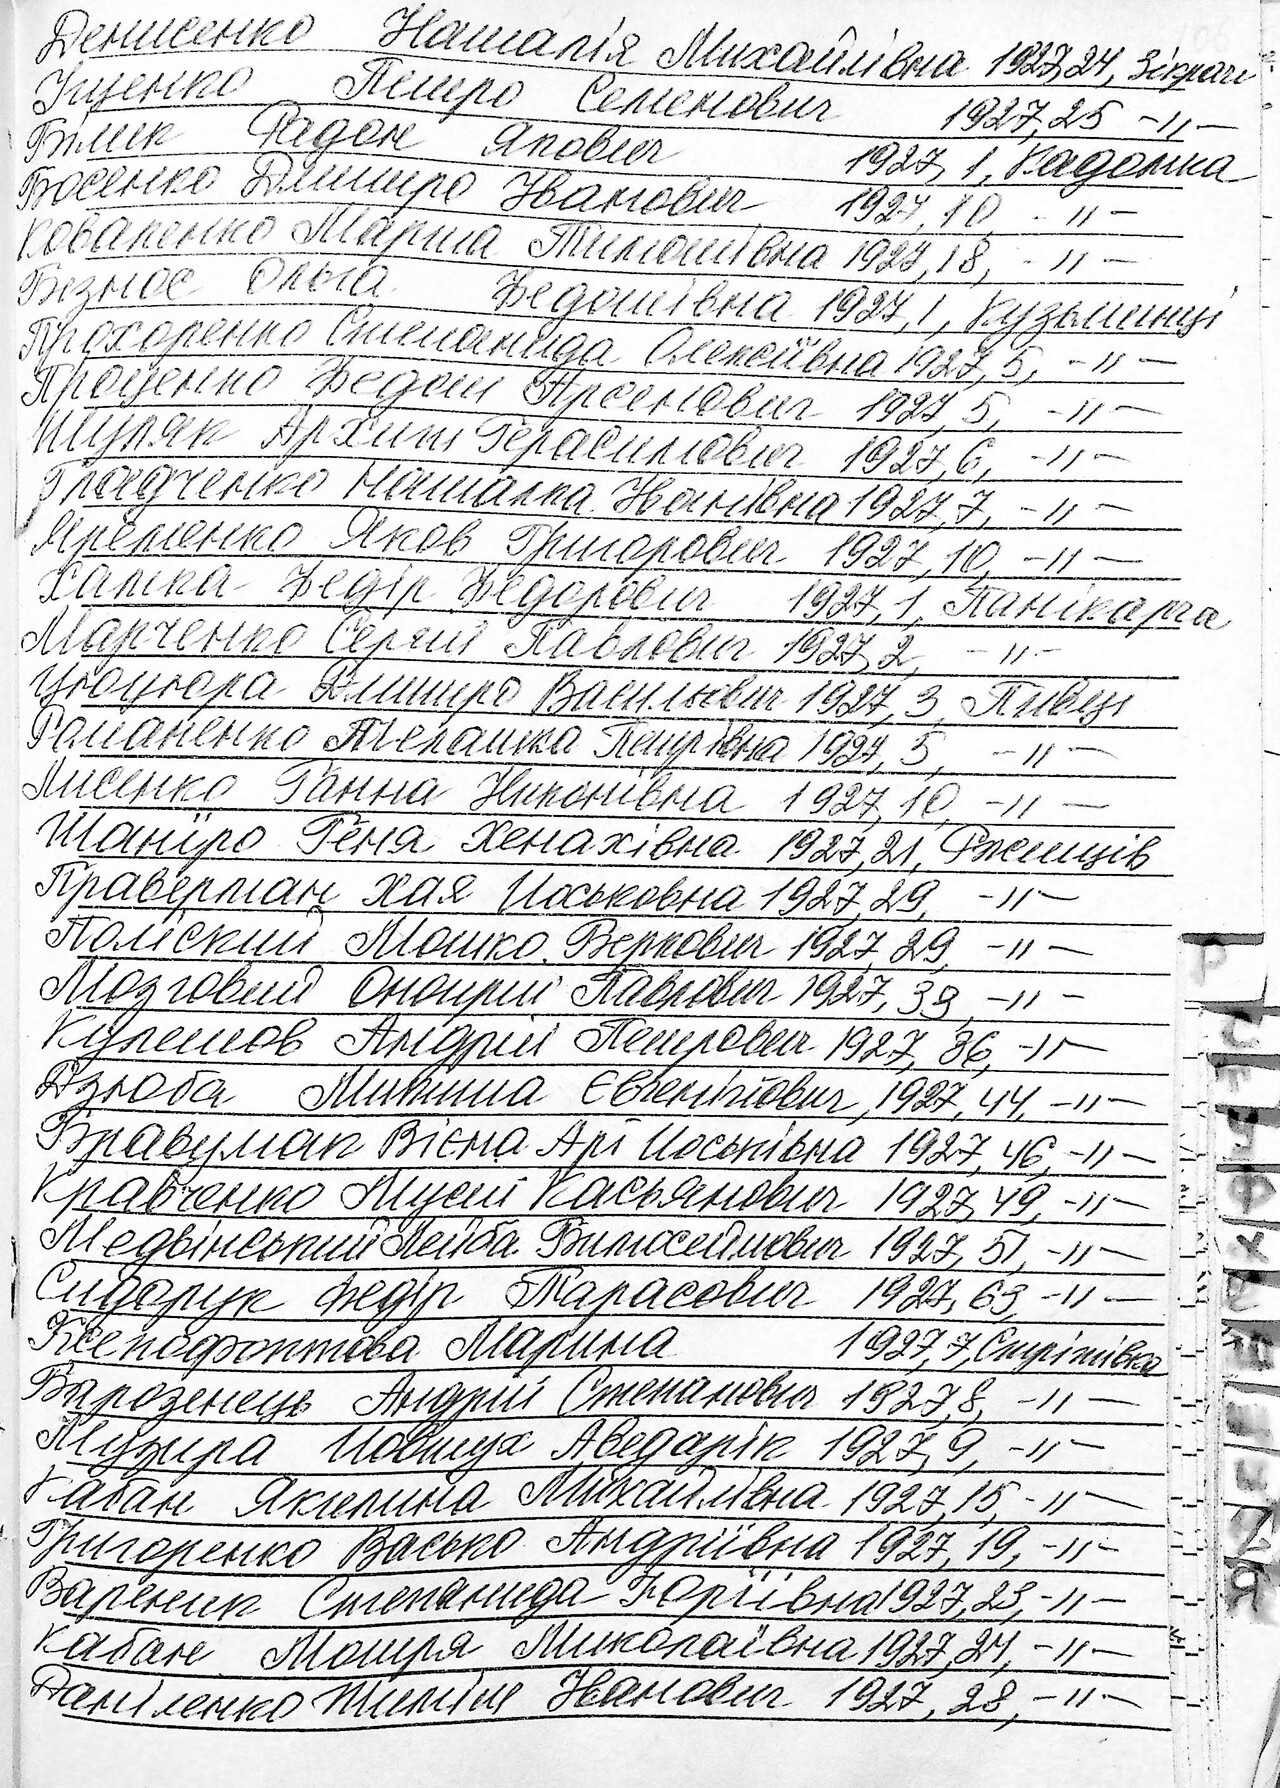 Денисенко Наталія Михайлівна 1927, 24, Зікрачі
Іщенко Петро Семенович 1927, 25 -"-
Білик Радон Якович 1927, 1, Кадомка
Босенко Дмитро Іванович 1927, 10, -"-
Коваленко Марта Тимошівна 1927, 18, -"-
Бізнос Ольга Федотівна 1927, 1, Кузьминці
Прохоренко Степанида Олексіївна 1927, 5, -"-
Проценко Федот Арсенович 1927, 5, -"-
Шуляк Архип Герасимович 1927, 6, -"-
Гладченко Наталка Іванівна 1927, 7, -"-
Яременко Яков Григорович 1927, 10, -"-
Хапка Федір Федорович 1927, 1, Панікарча
Марченко Сергій Павлович 1927, 2, -"-
Цюцюра Дмитро Васильович 1927, 3, Пивці
Романенко Мелашка Петрівна 1927, 5, -"-
Лисенко Ганна Никонівна 1927, 10, -"-
Шапіро Геня Хенахівна 1927, 21, Ржищів
Праверман Хая Йоськовна 1927, 29, -"-
Поліский Мошко Беркович 1927, 29, -"-
Мозговий Онопрій Павлович 1927, 39, -"-
Кулешов Андрій Петрович 1927, 36, -"-
Дзюба Микита Євгенійович, 1927, 44, -"-
Йоськівна 1927, 46, -"-
Кравченко Мусій Касьянович 1927, 49, -"-
Медвінський Лейба 1927, 51, -"-
Сидорук Федір Тарасович 1927, 63, -"-
Ксенофонтова Марина 1927, 7, Стрітівка
Андрій Степанович 1927, 8, -"-
Музира 1927, 9, -"-
Кабан Якилина Михайлівна 1927, 15, -"-
Григоренко Васько Андріївна 1927, 19, -"-
Вареник Степанида Юріївна 1927, 23, -"-
Кабан Мотря Миколаївна 1927, 24, -"-
Даніленко Пилип Іванович 1927, 28, -"-